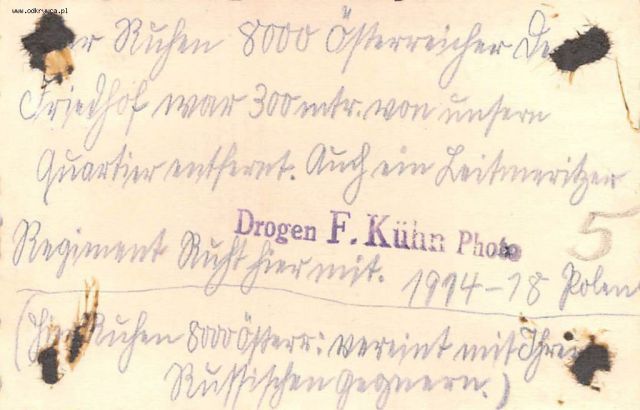 www.odkrywca.pl
Hier Ruhen 8000 Österreicher Der
Friedhof war 300 mtr. von unsern
Quartier entfernt. Auch ein Leitmeritzer
Drogen F. Kühn Photo
5
Regiment Ruht hier mit. 1914-18 Polen
(Hier Ruhen 8000 Österr: vereint mit Ihren
Russischen Gegnern.)